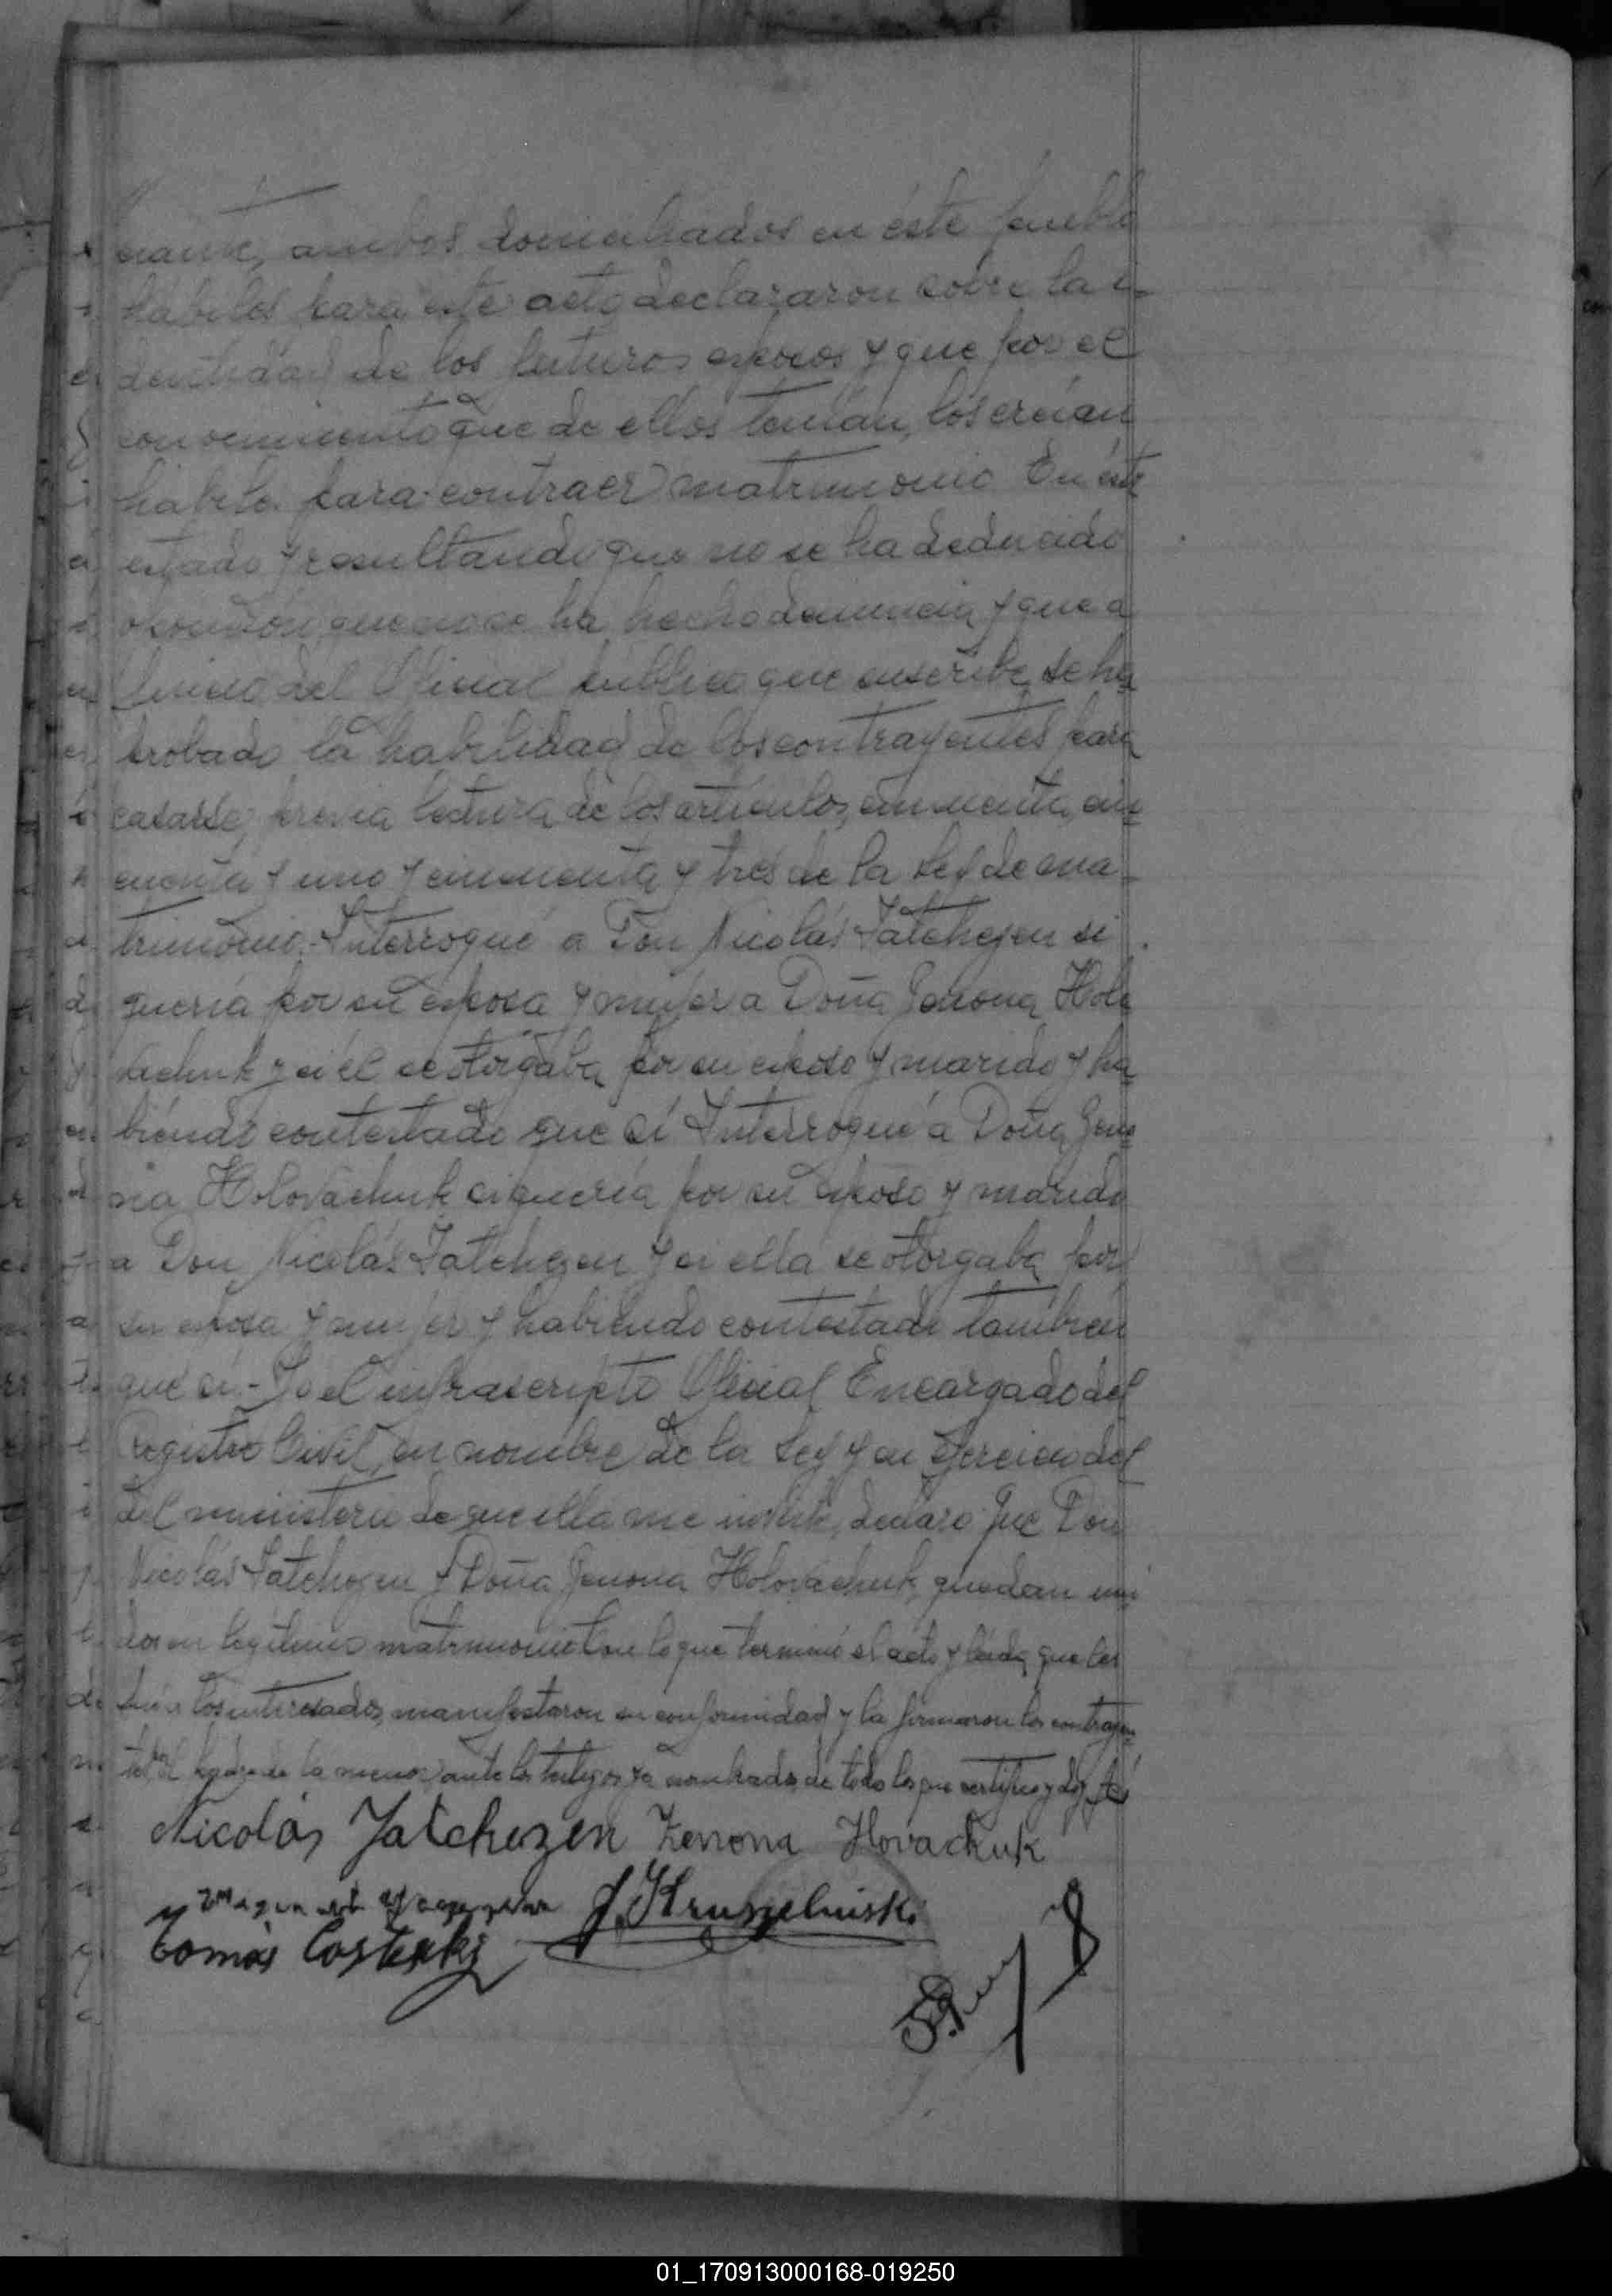 ciante, ambos domiciliados en éste pueblo
hábiles para este acto declararon sobre la i-
dentidad de los futuros esposos y que por el
conocimiento que de ellos tenían, los creían
habiles para contraer matrimonio En éste
estado y resultando que no se ha deducido
oposición, que no se ha hecho denuncia y que a
juicio del Oficial público que suscribe se ha
probado la habilidad de los contrayentes para
casarse, previa lectura de los artículos, cincuenta, cin=
cuenta y uno y cincuenta y tres de la Ley de ma-
trimonio.- Interrogué a Don Nicolás Jatchezen si
quería por su esposa y mujer a Doña Jenona Holo
vachuk y si él se otorgaba por su esposo y marido y ha=
biéndo contestado que sí Interrogué a Doña Jeno=
na Holovachuk si quería por su esposo y marido
a Don Nicolás Jatchezen y si ella se otorgaba por
su esposa y mujer y habiendo contestado también
que sí - Yo el infrascripto Oficial Encargado del
Registro Civil, en nombre de la Ley y en ejercicio del
del ministerio de que ella me inviste, declaro: Que Don
Nicolás Jatchezen y Doña Jenona Holovachuk, quedan uni
dos en legítimo matrimonio Con lo que terminó el acto y leida que les
fué a los interesados, manifestaron su conformidad y la firmaron los contrayen=
tes, el padre de la menor, ante los testigos ya nombrados, de todo lo que certifico y doy fé
Nicolás Jatchezen Zenona Hovachuk
J. Kruszelniski
Tomás Costeski